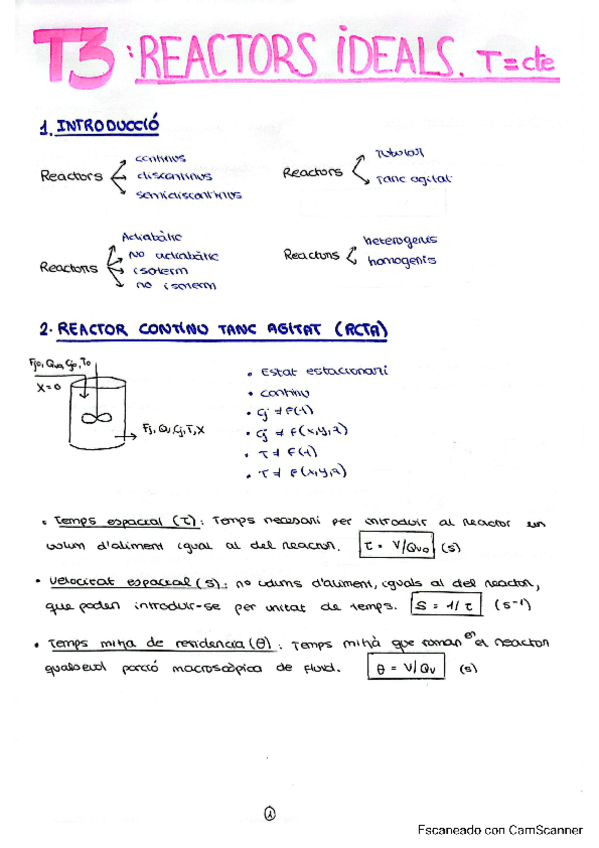 T3: REACTORS IDEALS. T=cte
1. INTRODUCCIÓ
Reactors
continus
discontinus
semidiscontinus
Reactors
tubular
Tanc agitat
Reactors
Adiabàtic
no adiabàtic
isoterm
no isoterm
Reactors
heterogenis
homogenis
2. REACTOR CONTINU TANC AGITAT (RCTA)
Fj0, Qv0, Cj0, T0
X=0
Fj, Qv, Cj, T, X
• Estat estacionari
• continu
• Cj ≠ f(t)
• Cj ≠ f(x,y,z)
• T ≠ f(t)
• T ≠ f(x,y,z)
• Temps espacial (τ): Temps necessari per introduir al reactor un
volum d'aliment igual al del reactor. τ = V/Qv0 (s)
• Velocitat espacial (S): no volums d'aliment, iguals al del reactor,
que poden introduir-se per unitat de temps. S = 1/τ (s-1)
• Temps mitjà de residencia (θ): Temps mitjà que roman en el reactor
qualsevol porció macroscòpica de fluid. θ = V/Qv (s)
1
Escaneado con CamScanner